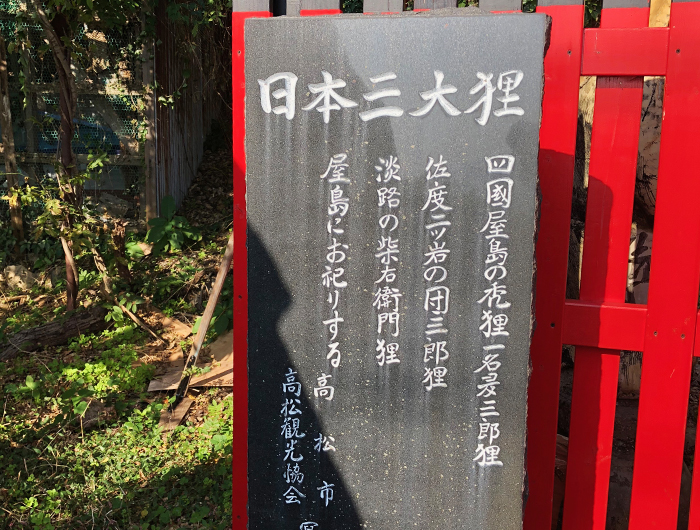 日本三大狸
四國屋島の禿狸一名三郎狸
佐度二ツ岩の団三郎狸
淡路の柴右衛門狸
屋島にお祀りする
高松市
高松観光協会